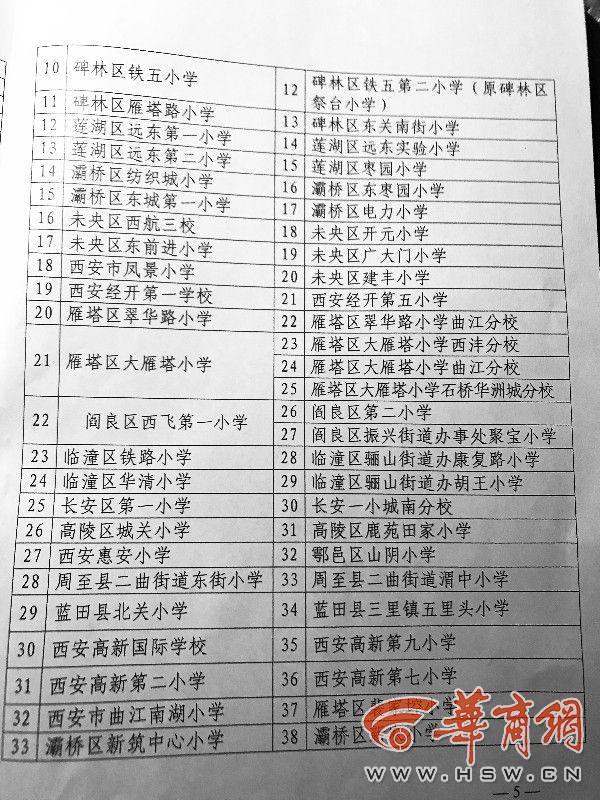 10 碑林区铁五小学 12 碑林区铁五第二小学（原碑林区
祭台小学）
11 碑林区雁塔路小学 13 碑林区东关南街小学
12 莲湖区远东第一小学 14 莲湖区远东实验小学
13 莲湖区远东第二小学 15 莲湖区枣园小学
14 灞桥区纺织城小学 16 灞桥区东枣园小学
15 灞桥区东城第一小学 17 灞桥区电力小学
16 未央区西航三校 18 未央区开元小学
17 未央区东前进小学 19 未央区广大门小学
18 西安市凤景小学 20 未央区建丰小学
19 西安经开第一学校 21 西安经开第五小学
20 雁塔区翠华路小学 22 雁塔区翠华路小学曲江分校
21 雁塔区大雁塔小学 23 雁塔区大雁塔小学西沣分校
24 雁塔区大雁塔小学曲江分校
25 雁塔区大雁塔小学石桥华洲城分校
22 阎良区西飞第一小学 26 阎良区第二小学
27 阎良区振兴街道办事处聚宝小学
23 临潼区铁路小学 28 临潼区骊山街道办康复路小学
24 临潼区华清小学 29 临潼区骊山街道办胡王小学
25 长安区第一小学 30 长安一小城南分校
26 高陵区城关小学 31 高陵区鹿苑田家小学
27 西安惠安小学 32 鄠邑区山阴小学
28 周至县二曲街道东街小学 33 周至县二曲街道渭中小学
29 蓝田县北关小学 34 蓝田县三里镇五里头小学
30 西安高新国际学校 35 西安高新第九小学
31 西安高新第二小学 36 西安高新第七小学
32 西安市曲江南湖小学 37 雁塔区
33 灞桥区新筑中心小学 38 灞桥区 小学
華商網
WWW.HSW.CN
—5—